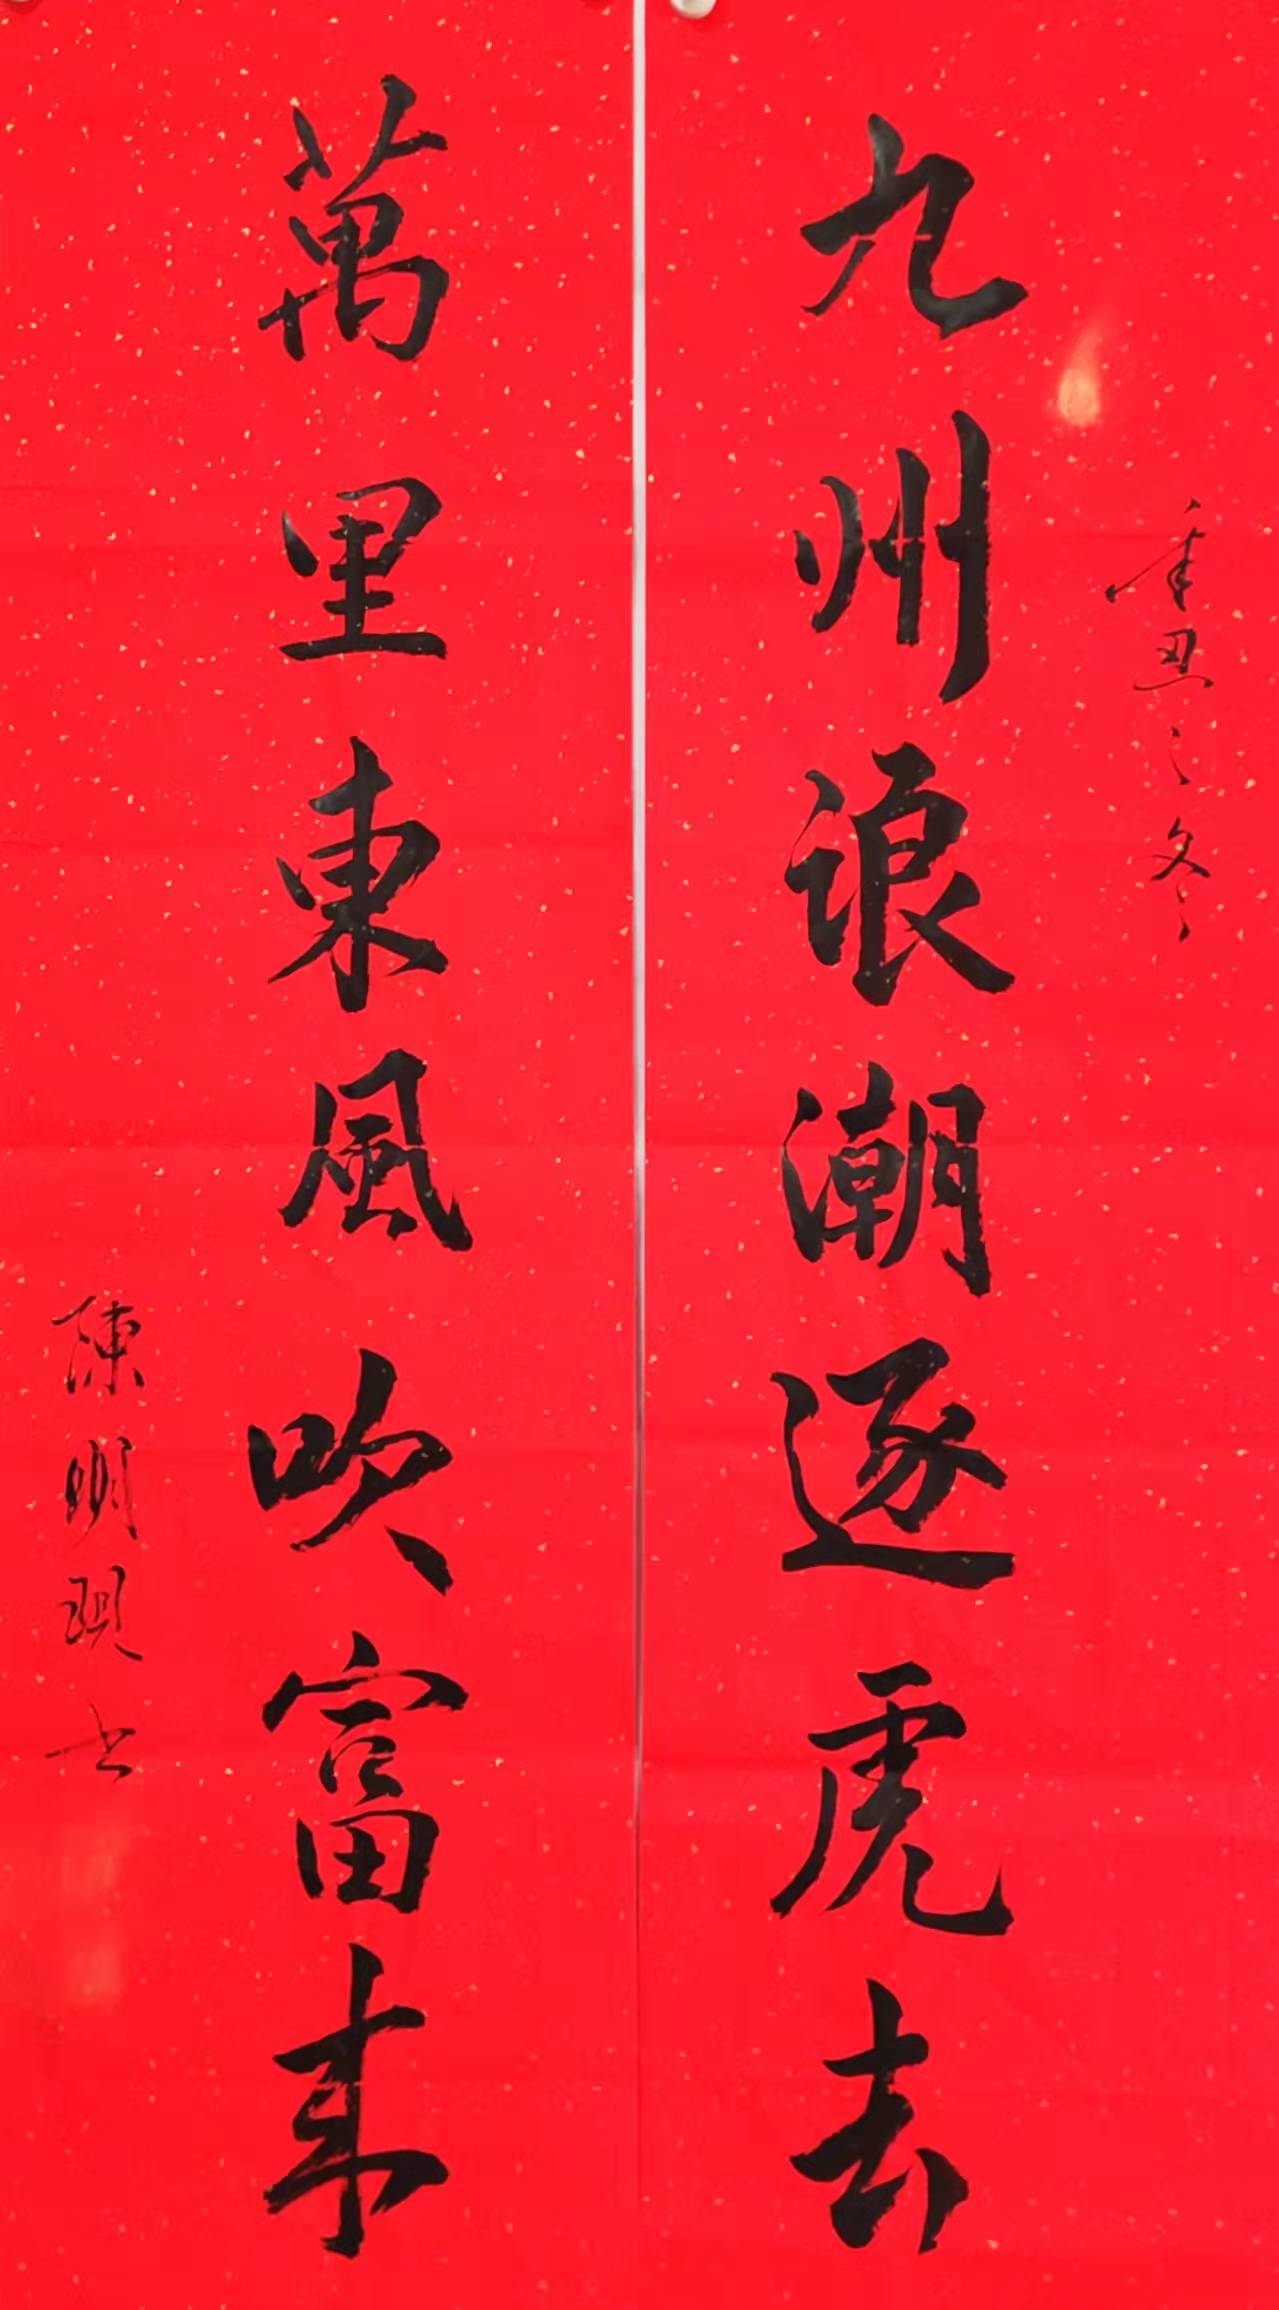 辛丑之冬
九州浪潮逐虎去
萬里東風吹富来
陳明
书